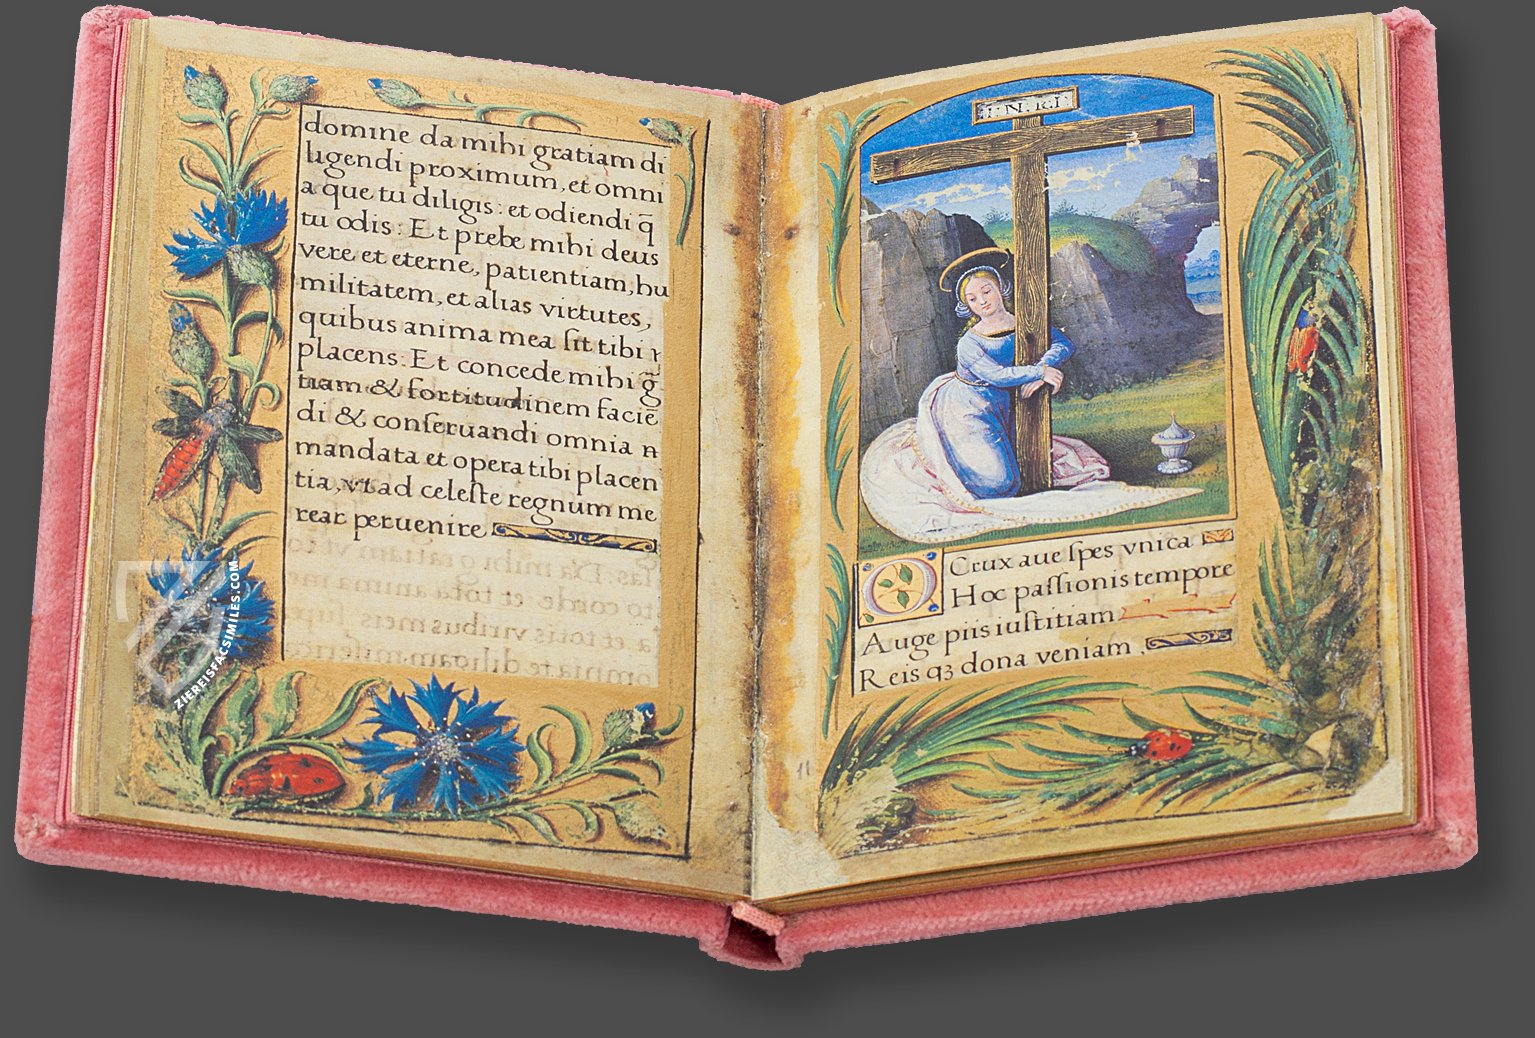 domine da mihi gratiam di
ligendi proximum, et omni
a que tu diligis: et odiendi q̄
tu odis: Et prebe mihi deus
vere et eterne, patientiam, hu
militatem, et alias virtutes,
quibus anima mea sit tibi
placens: Et concede mihi g̃
tiam & fortitudinem facie
di & conseruandi omnia
mandata et opera tibi placen
tia, vt ad celeste regnum me
rear peruenire
I·N·R·I·
O Crux aue spes vnica
Hoc passionis tempore
Auge piis iustitiam
Reis qȝ dona veniam.
11
ZIEREISFACSIMILES.COM